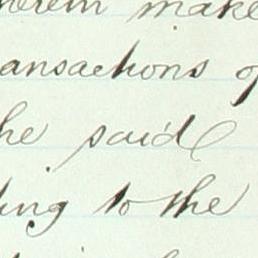 make
ansactions of
he said
ing to the